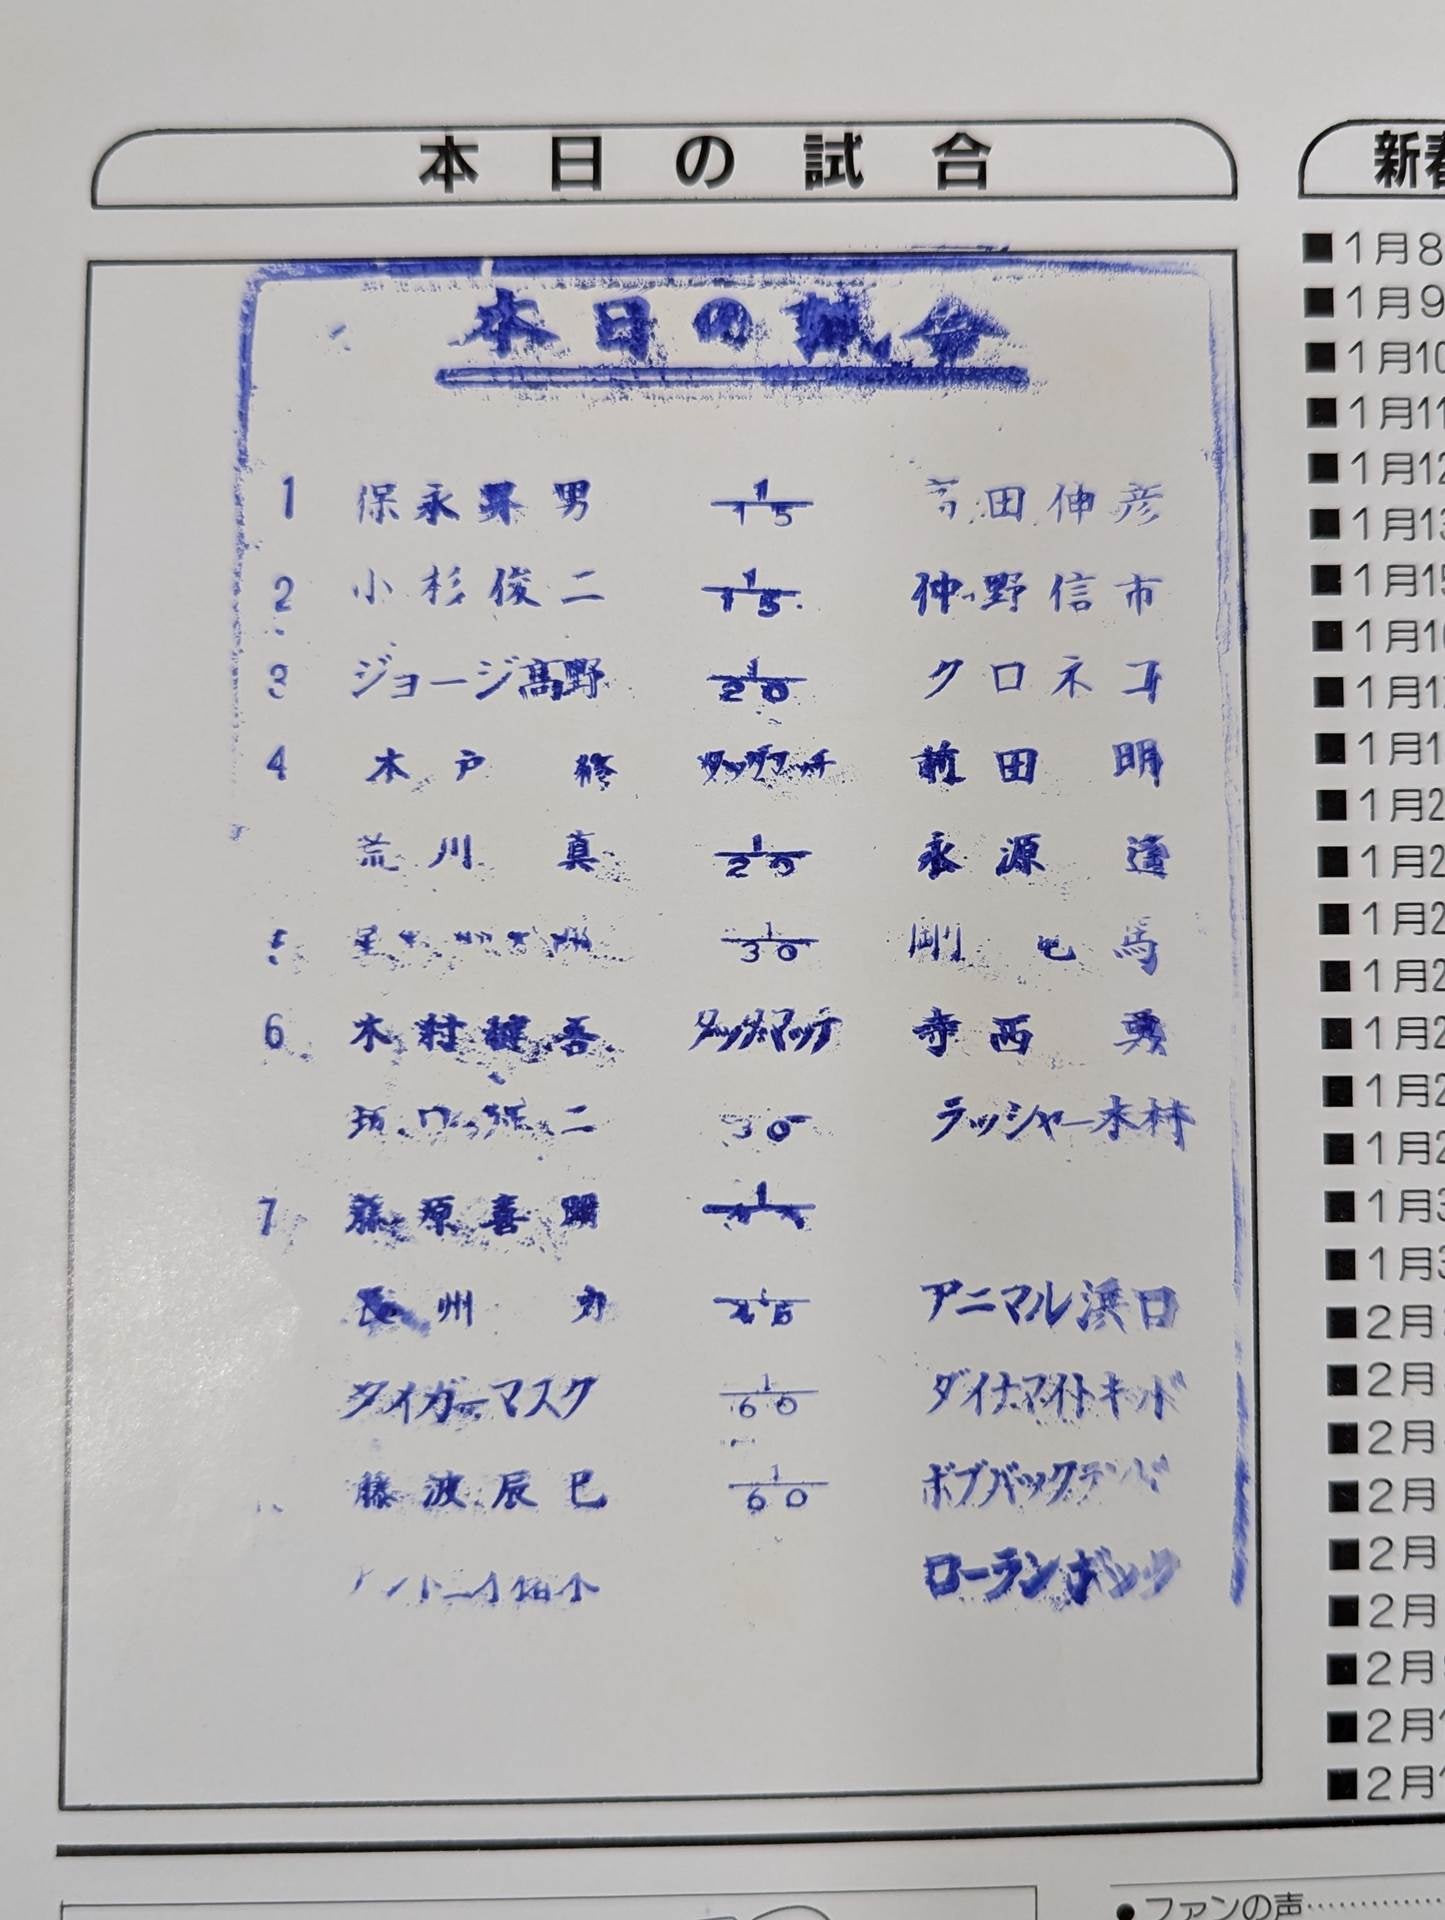 本日の試合
新春
本日の試合
1 保永昇男 1/15 吉田伸彦
2 小杉俊二 1/15 仲野信市
3 ジョージ高野 1/20 クロネコ
4 木戸修 タッグマッチ 前田明
荒川真 1/20 永源遥
剛竜馬 1/30
6 木村健吾 タッグマッチ 寺西勇
坂口征二 30 ラッシャー木村
7 藤原喜明
長州力 アニマル浜口
タイガーマスク 1/60 ダイナマイトキッド
藤波辰巳 1/60 ボブバックランド
アントニオ猪木 ローランボック
■1月8
■1月9
■1月10
■1月11
■1月12
■1月13
■1月15
■1月16
■1月17
■1月1
■1月2
■1月2
■1月2
■1月2
■1月2
■1月2
■1月2
■1月3
■1月3
■2月
■2月
■2月
■2月
■2月
■2月
■2月
■2月1
■2月1
●ファンの声